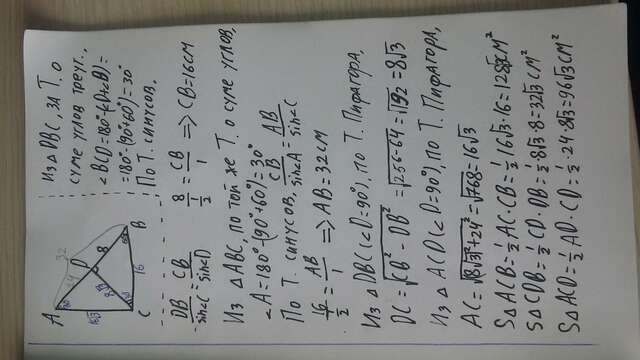 Из △DBC, за Т. о
сумме углов треуг.,
∠BCD=180°-(D+∠B)=
=180°-(90°+60°)=30°
По Т. синусов.
A
32
24
D
8
60°
B
16
C
16√3
DB/sin∠C = CB/sin∠D
8/(1/2) = CB/1 => CB=16см
Из △ABC, по той же Т. о сумме углов,
∠A=180°-(90°+60°)=30°
По Т. синусов, CB/sin∠A = AB/sin∠C
16/(1/2) = AB/1 => AB=32см
Из △DBC(∠D=90°), по Т. Пифагора,
DC=√CB²-DB²=√256-64=√192=8√3
Из △ACD(∠D=90°), по Т. Пифагора,
AC=√8√3²+24²=√768=16√3
S△ACB=1/2 AC·CB=1/2 16√3·16=128√3см²
S△CDB=1/2 CD·DB=1/2 8√3·8=32√3см²
S△ACD=1/2 AD·CD=1/2·24·8√3=96√3см²